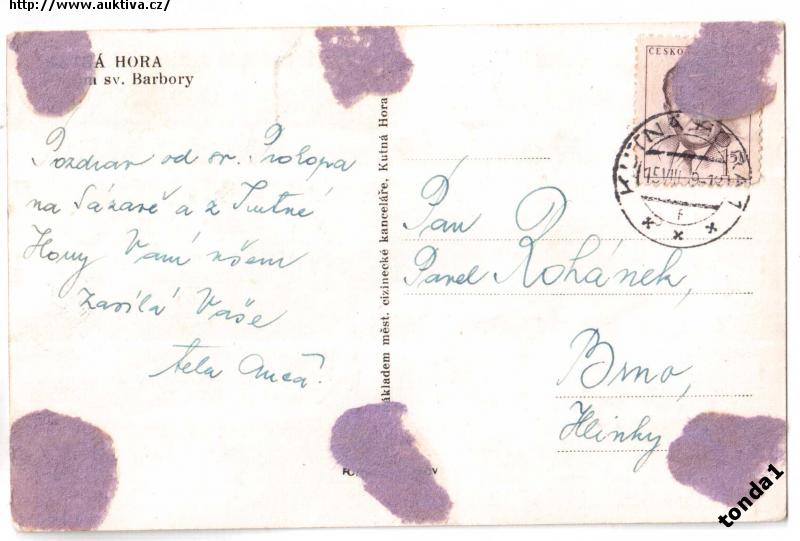 http://www.auktiva.cz/
HORA
sv. Barbory
Pozdrav od sv. Prokopa
na Sázavě a z Kutné
Hory Vám všem
zasílá Vaše
teta
Nákladem měst. cizinecké kanceláře, Kutná Hora
ČESKO
Pan
Pavel Rohánek,
Brno,
Hlinky
tonda1